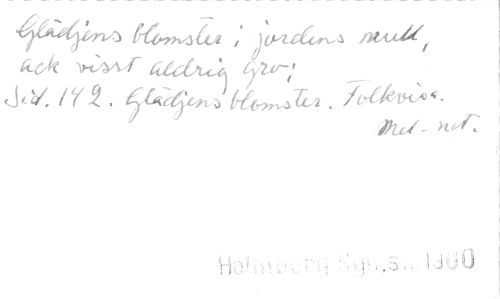 Glädjens blomster i jordens mull,
ack visst aldrig gro;
Sid. 142. Glädjens blomster. Folkvisa.
Mel-not.
Holmberg 1900